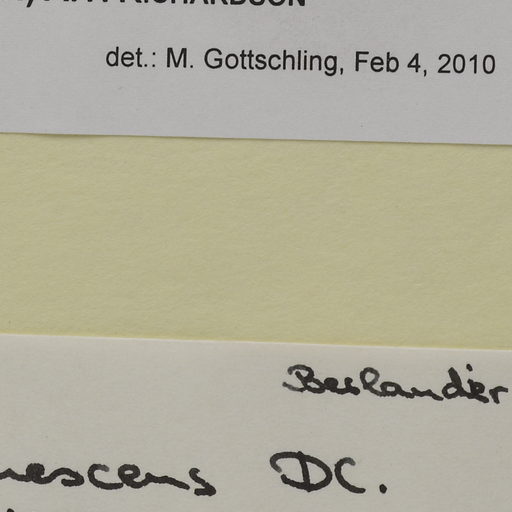 RICHARDSON
det.: M. Gottschling, Feb 4, 2010
Berlandier
nescens DC.